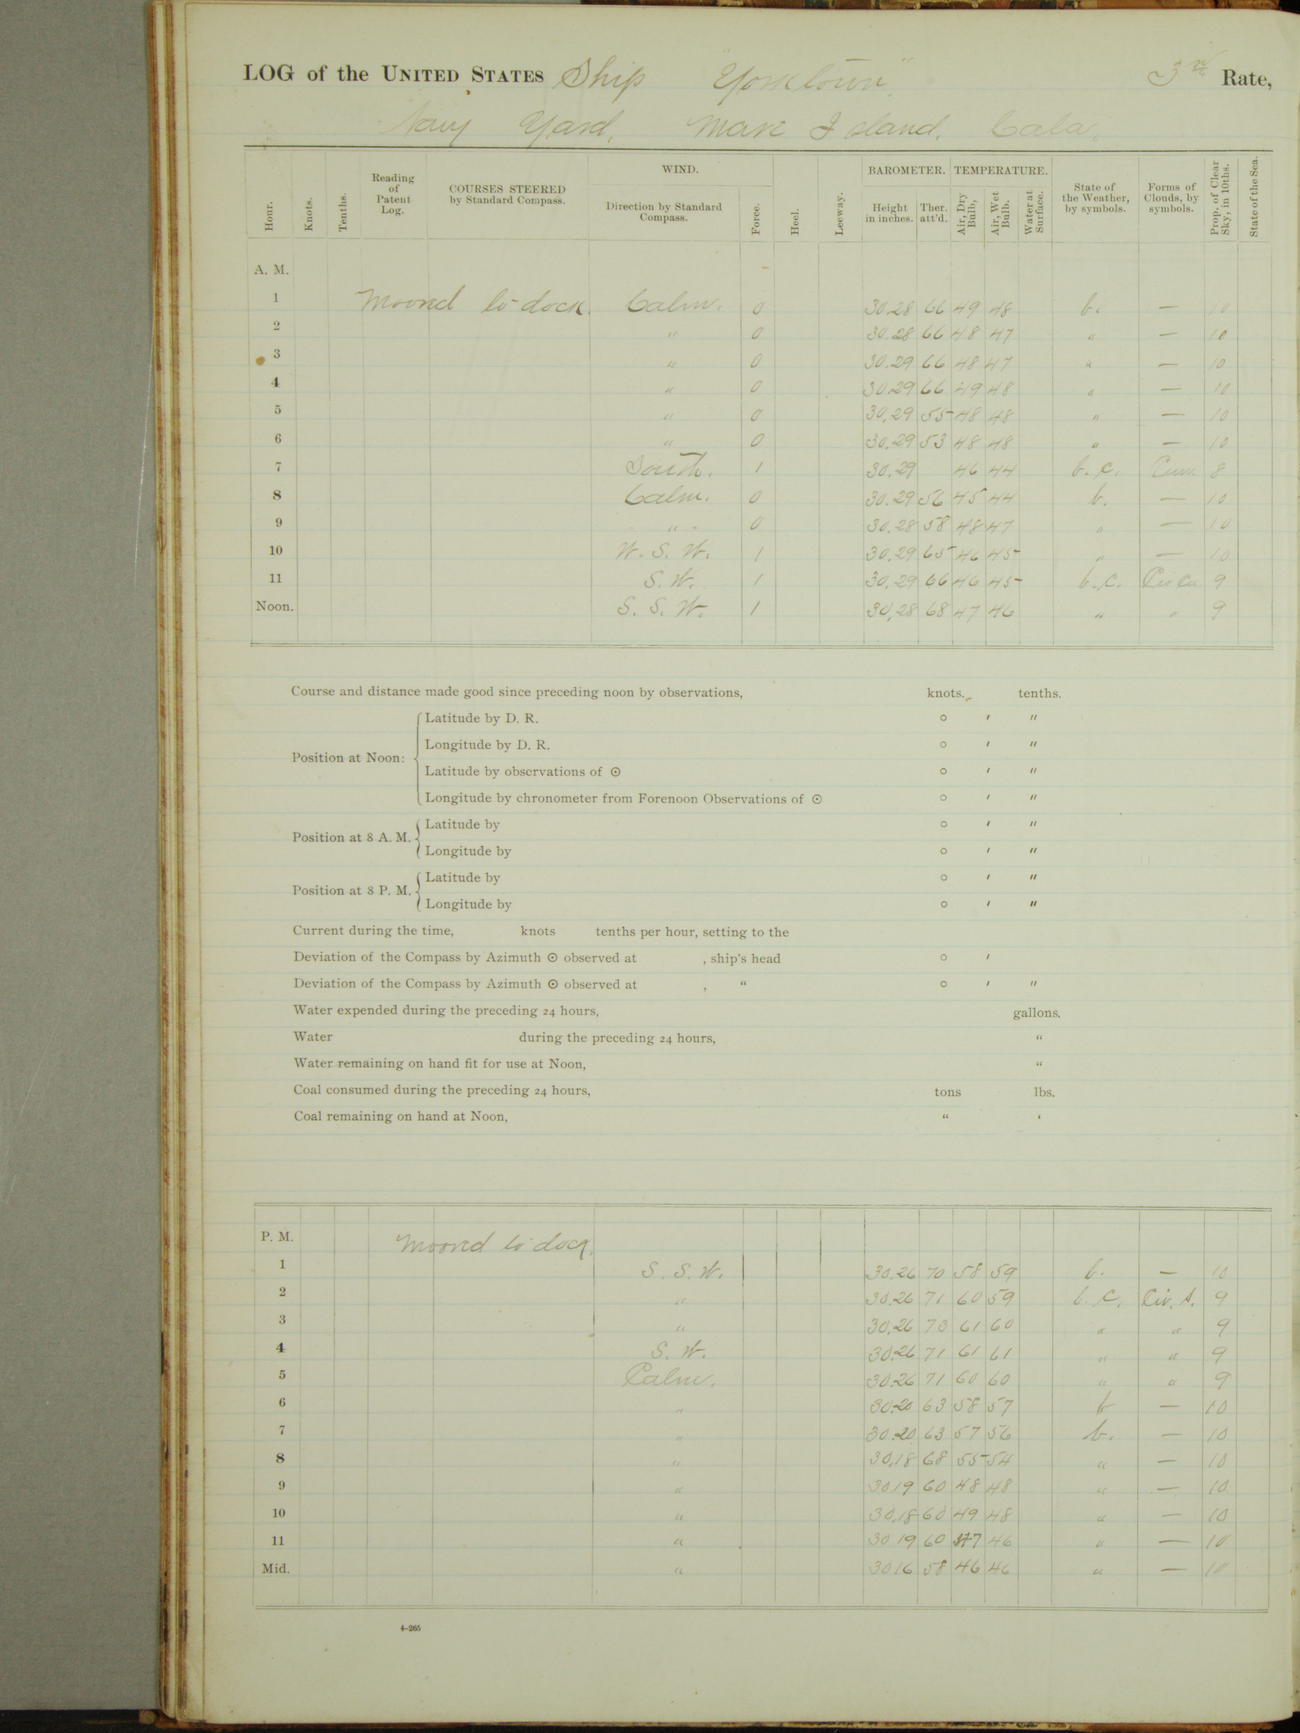 LOG of the UNITED STATES Ship "Yorktown", 3rd Rate,
Navy Yard, Mare Island, Cala.
Hour. Knots. Tenths. Reading of Patent Log. COURSES STEERED by Standard Compass. WIND. Direction by Standard Compass. Force. Heel. Leeway. BAROMETER. Height in inches. Ther. att'd. TEMPERATURE. Air, Dry Bulb, Air, Wet Bulb. Water at Surface. State of the Weather, by symbols. Forms of Clouds, by symbols. Prop. of Clear Sky, in 10ths. State of the Sea.
A. M.
1 Moored to dock. Calm. 0 30.28 66 49 48 b. — 10
2 " 0 30.28 66 48 47 " — 10
3 " 0 30.29 66 48 47 " — 10
4 " 0 30.29 66 49 48 " — 10
5 " 0 30.29 55 48 48 " — 10
6 " 0 30.29 53 48 48 " — 10
7 South. 1 30.29 46 44 b.c. Cum 8
8 Calm. 0 30.29 56 45 44 b. — 10
9 " 0 30.28 58 48 47 " — 10
10 W. S. W. 1 30.29 65 46 45 " — 10
11 S. W. 1 30.29 66 46 45 b.c. 9
Noon. S. S. W. 1 30,28 68 47 46 " " 9
Course and distance made good since preceding noon by observations, knots. tenths.
Position at Noon:
Latitude by D. R. ° ′ ″
Longitude by D. R. ° ′ ″
Latitude by observations of ☉ ° ′ ″
Longitude by chronometer from Forenoon Observations of ☉ ° ′ ″
Position at 8 A. M.
Latitude by ° ′ ″
Longitude by ° ′ ″
Position at 8 P. M.
Latitude by ° ′ ″
Longitude by ° ′ ″
Current during the time, knots tenths per hour, setting to the
Deviation of the Compass by Azimuth ☉ observed at , ship's head ° ′
Deviation of the Compass by Azimuth ☉ observed at , " ° ′ ″
Water expended during the preceding 24 hours, gallons.
Water during the preceding 24 hours, "
Water remaining on hand fit for use at Noon, "
Coal consumed during the preceding 24 hours, tons lbs.
Coal remaining on hand at Noon, " '
P. M. Moored to dock.
1 S. S. W. 30.26 70 58 59 b. — 10
2 " 30.26 71 60 59 b.c. Cir. S. 9
3 " 30.26 73 61 60 " " 9
4 S. W. 30.26 71 61 61 " " 9
5 Calm. 30.26 71 60 60 " " 9
6 " 30.20 63 58 57 b — 10
7 " 30.20 63 57 56 b. — 10
8 " 30.18 68 55 54 " — 10
9 " 30.19 60 48 48 " — 10
10 " 30.18 60 49 48 " — 10
11 " 30 19 60 47 46 " — 10
Mid. " 30 16 58 46 46 " — 10
4-265